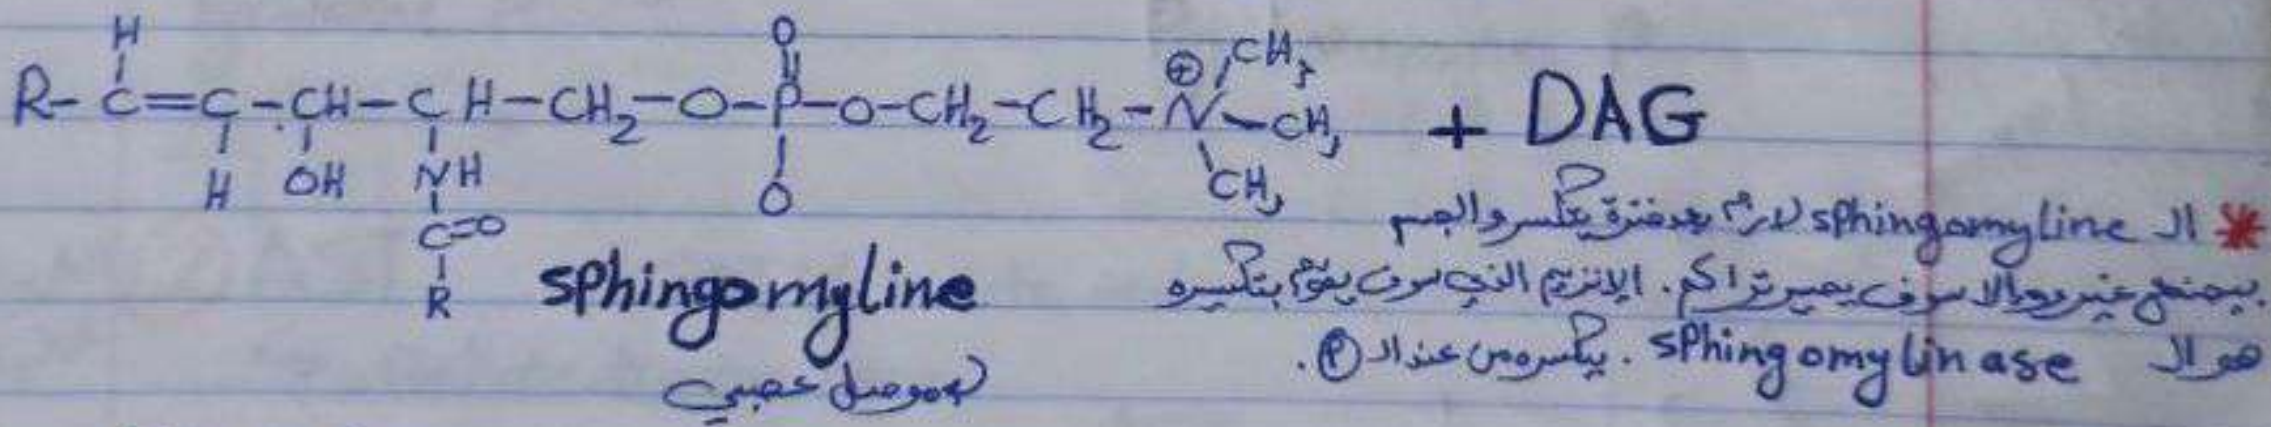 R-C=C-CH-CH-CH₂-O-P-O-CH₂-CH₂-N-CH₃ + DAG
H
O
⊕
CH₃
H OH NH
O
CH₃
C=O
R
sphingomyline
موصل عصبي
* الـ sphingomyline لازم بعد فترة يتكسر والجسم
بيصنع غيره والا سوف يصير تراكم. الانزيم الذي سوف يقوم بتكسيره
هو الـ sphingomylinase. بكسره من عند الـ Ⓟ.